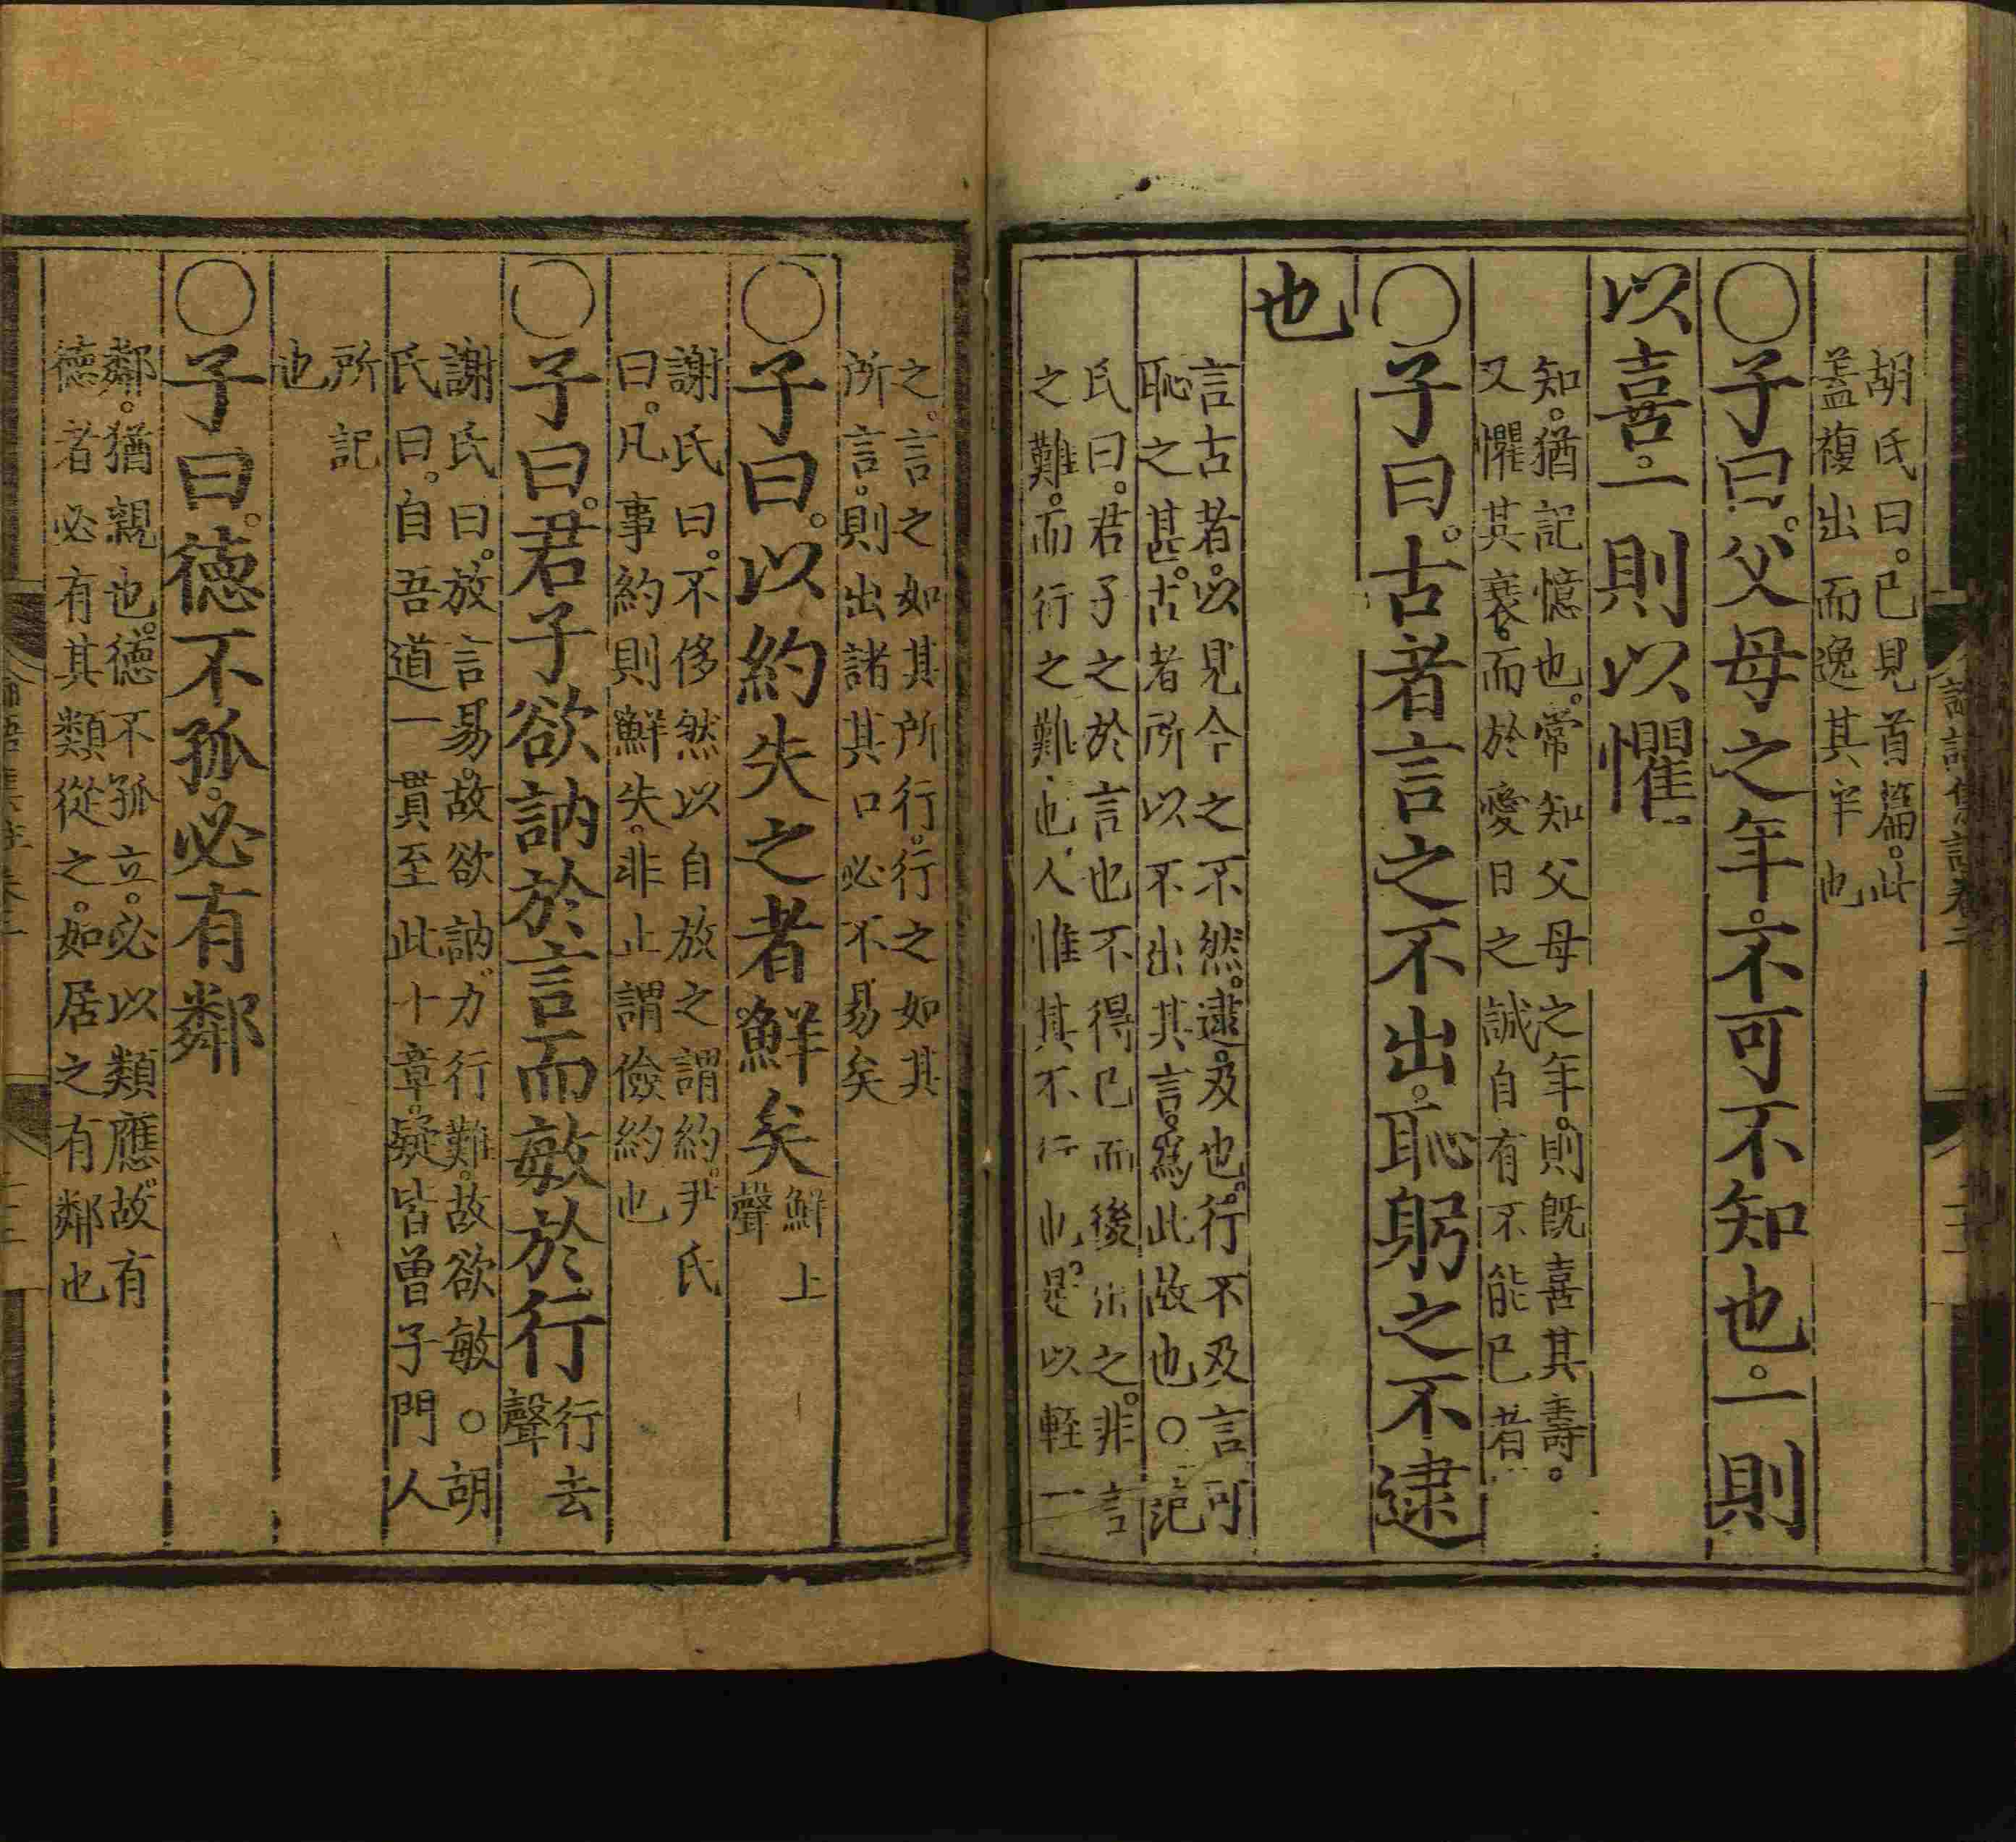 胡氏曰。已見首篇。此
蓋複出而逸其半也
○子曰。父母之年。不可不知也。一則
以喜。一則以懼
知。猶記憶也。常知父母之年。則旣喜其壽。
又懼其衰。而於愛日之誠自有不能已者
○子曰。古者言之不出。恥躬之不逮
也
言古者。以見今之不然。逮。及也。行不及言可
恥之甚。古者所以不出其言。爲此故也○范
氏曰。君子之於言也不得已而後出之。非言
之難。而行之難也。人惟其不行也。是以輕言
之。言之如其所行。行之如其
所言。則出諸其口必不易矣
○子曰。以約失之者鮮矣
鮮上
聲
謝氏曰。不侈然以自放之謂約。尹氏
曰。凡事約則鮮失。非止謂儉約也
○子曰。君子欲訥於言而敏於行
行去
聲
謝氏曰。放言易。故欲訥。力行難。故欲敏○胡
氏曰。自吾道一貫至此十章。疑皆曾子門人
所記
也
○子曰。德不孤。必有鄰
鄰。猶親也。德不孤立。必以類應。故有
德者必有其類從之。如居之有鄰也